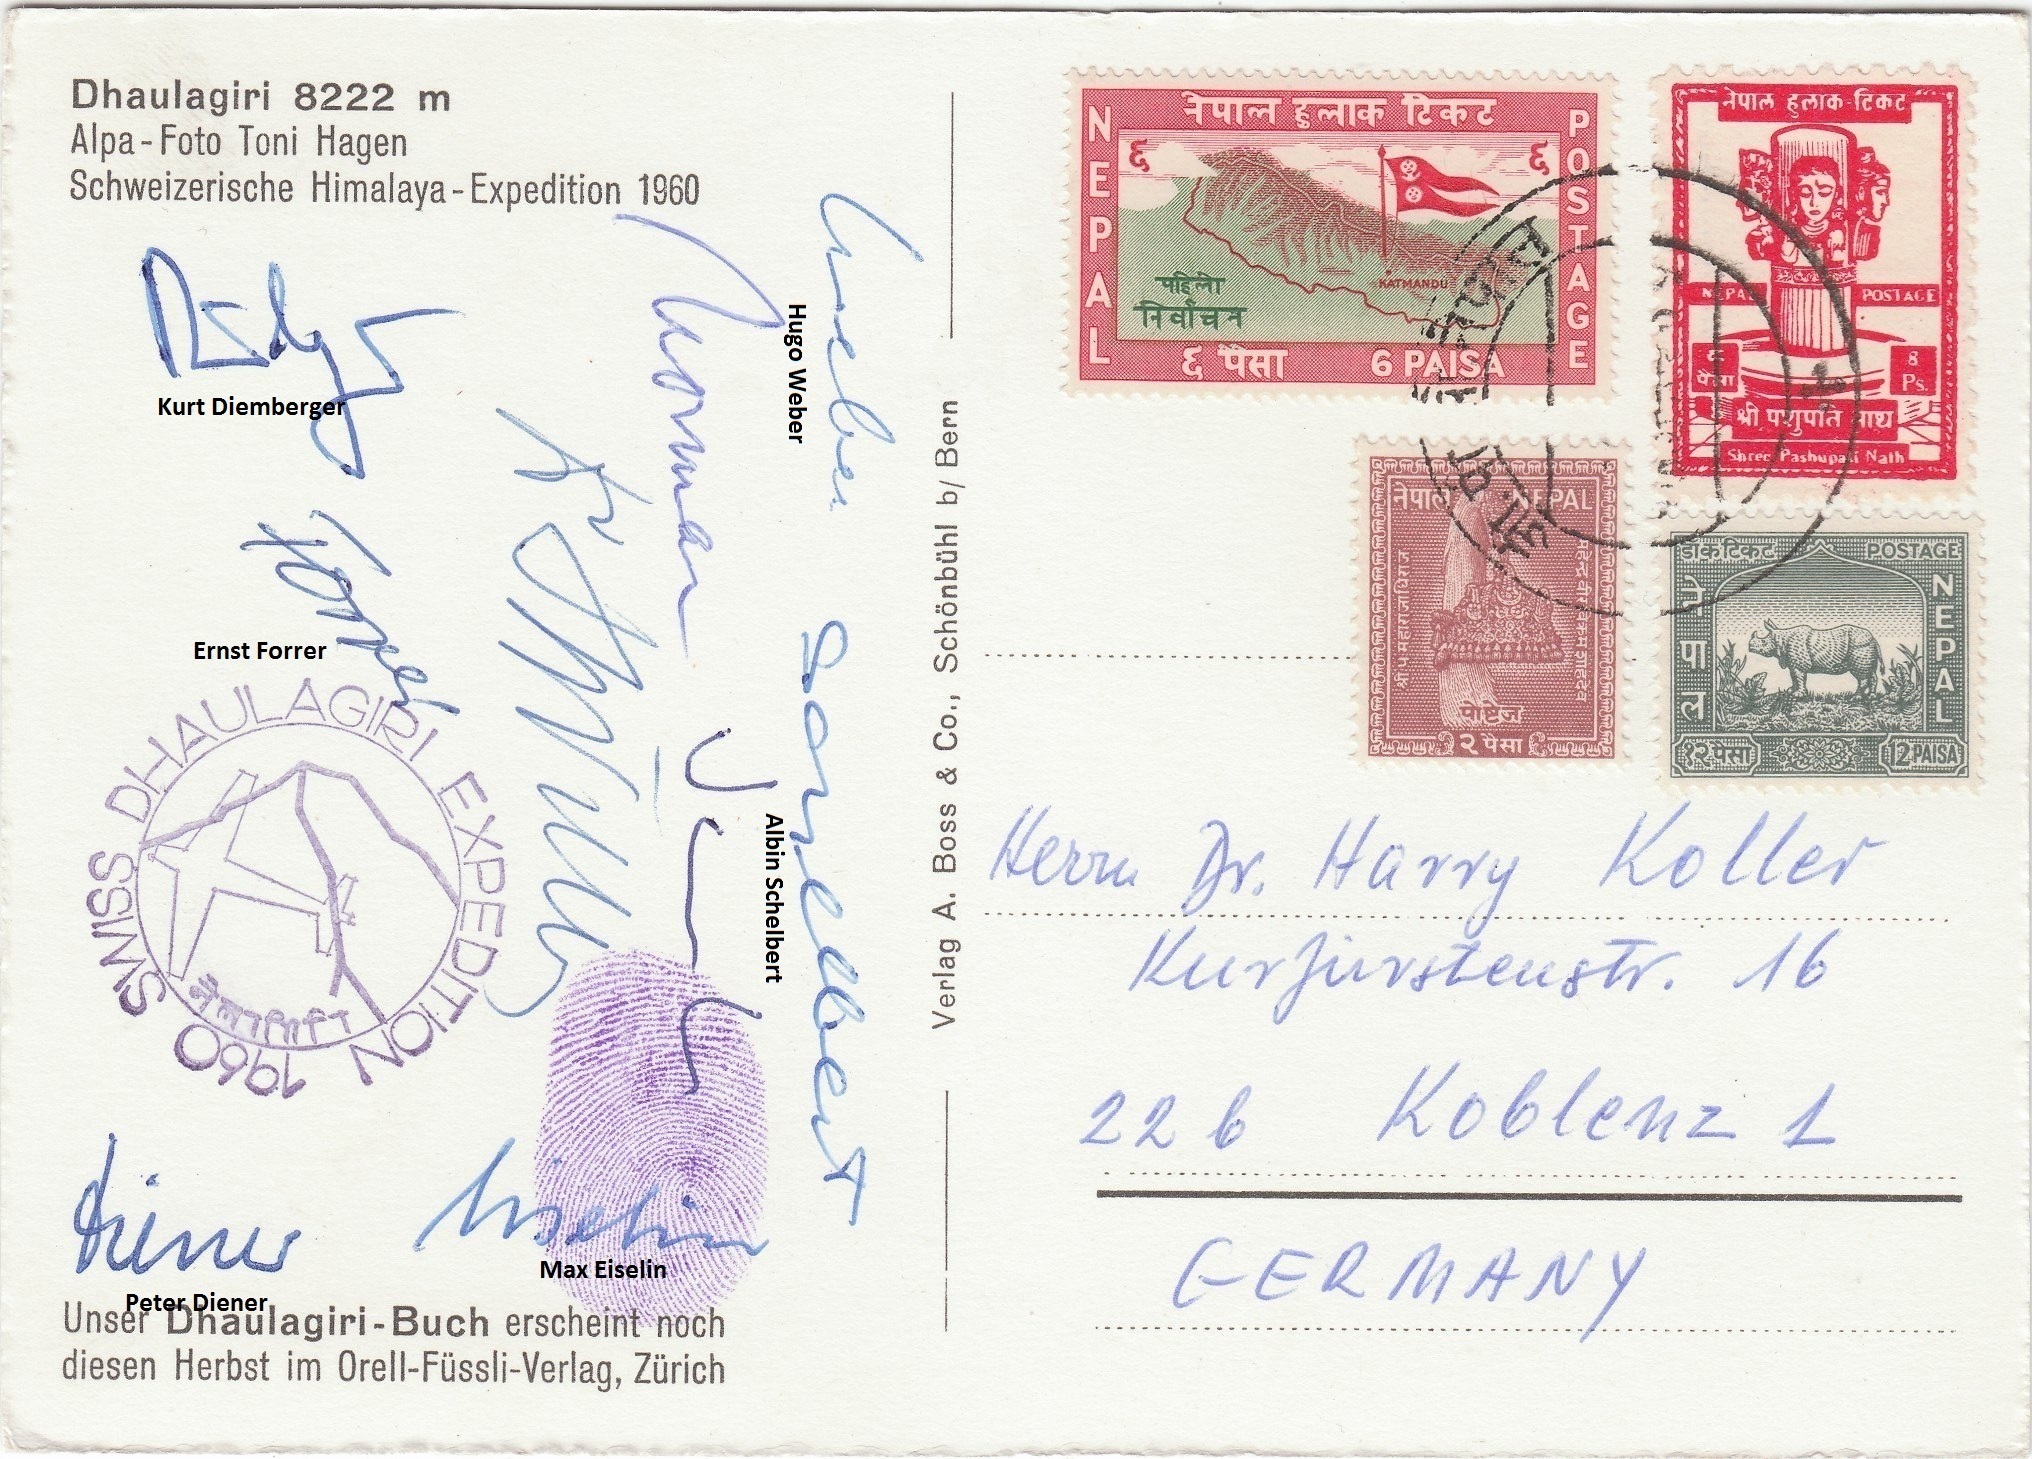 Dhaulagiri 8222 m
Alpa-Foto Toni Hagen
Schweizerische Himalaya-Expedition 1960
Kurt Diemberger
Forrer
Ernst Forrer
Norman
Weber
Hugo Weber
Schelbert
Albin Schelbert
SWISS DHAULAGIRI EXPEDITION 1960
Diener
Peter Diener
Eiselin
Max Eiselin
Unser Dhaulagiri-Buch erscheint noch
diesen Herbst im Orell-Füssli-Verlag, Zürich
Verlag A. Boss & Co., Schönbühl b/ Bern
नेपाल हुलाक टिकट
NEPAL
POSTAGE
६
६
KATMANDU
पहिलो
निर्वाचन
६ पैसा
6 PAISA
नेपाल हुलाक टिकट
NEPAL
POSTAGE
८
पैसा
8
Ps.
श्री पशुपति नाथ
Shree Pashupati Nath
नेपाल NEPAL
पोष्टेज
२ पैसा
डाक टिकट
POSTAGE
नेपाल
NEPAL
१२ पैसा
12 PAISA
Herrn Dr. Harry Koller
Kurfürstenstr. 16
22b Koblenz 1
GERMANY